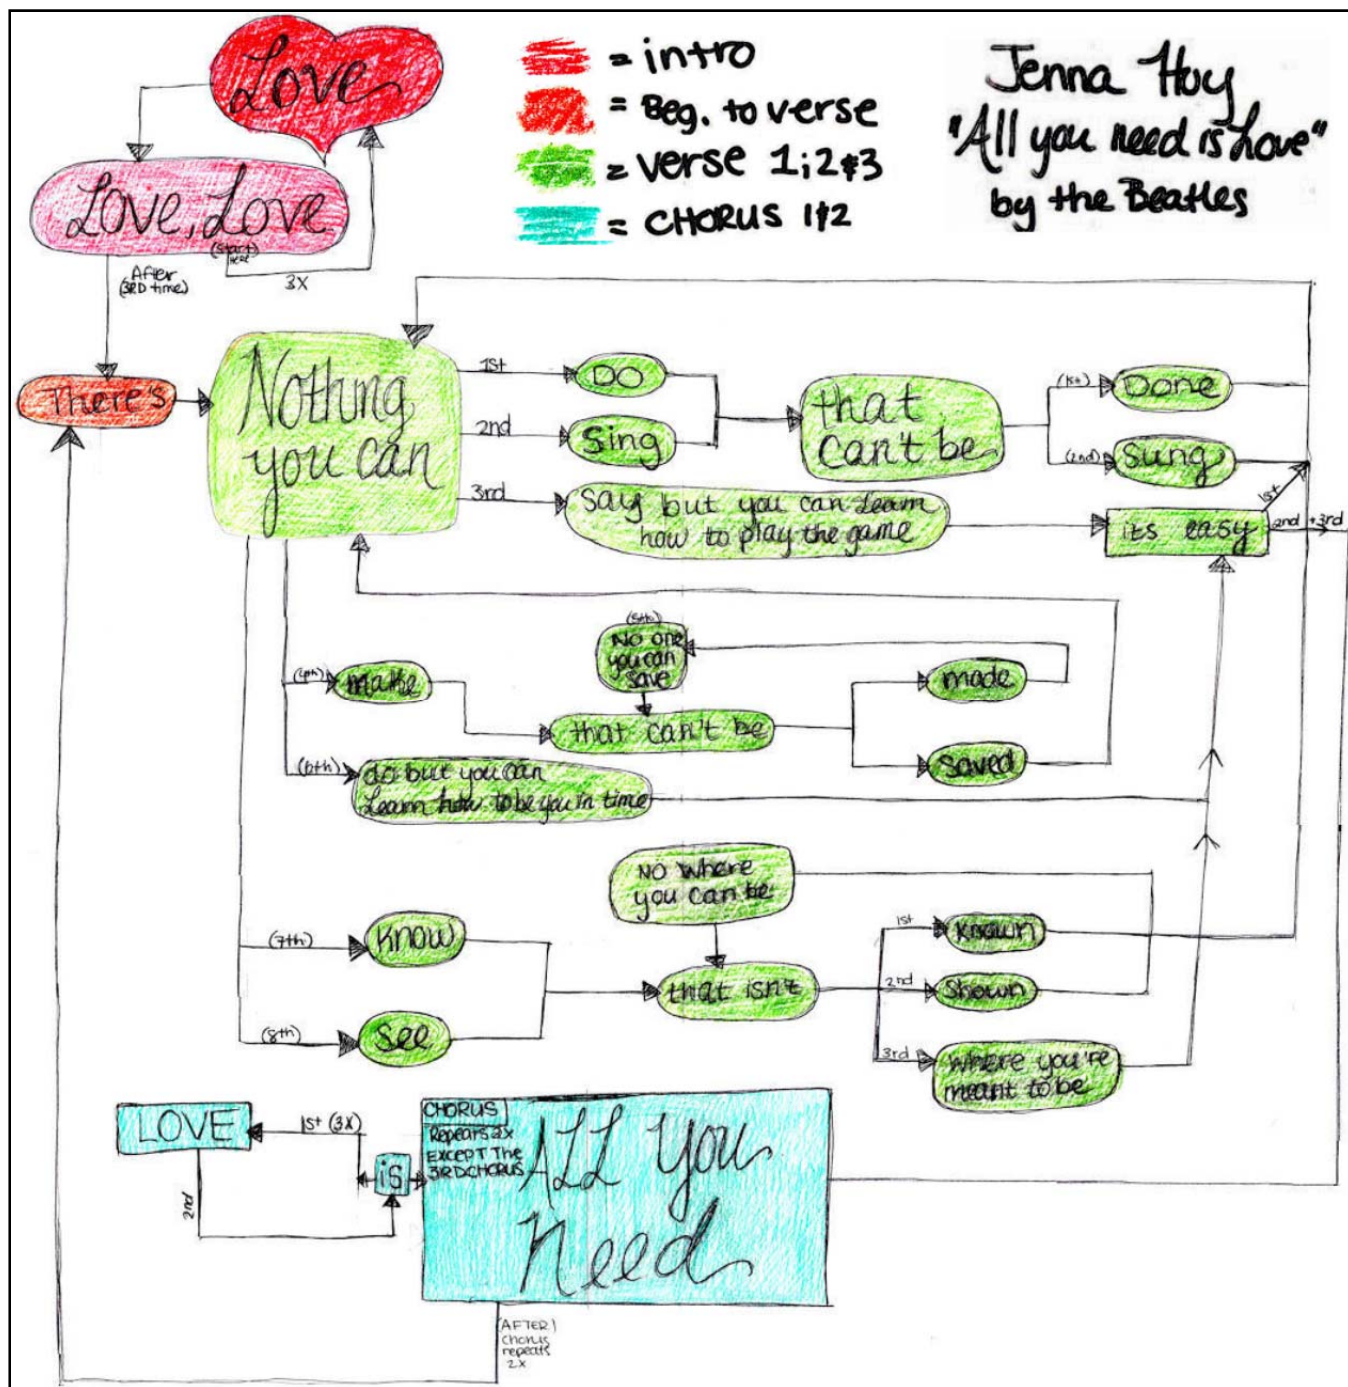 Love
Love, Love
(start
here)
3X
After
(3RD time)
= intro
= Beg. to verse
= verse 1;2&3
= CHORUS 1&2
Jenna Hoy
"All you need is Love"
by the Beatles
There's
Nothing
you can
1st
DO
2nd
Sing
3rd
say but you can Learn
how to play the game
that
can't be
(1st)
Done
(2nd)
Sung
its easy
1st
2nd + 3rd
(4th)
make
(5th)
No one
you can
save
that can't be
made
saved
(6th)
do but you can
Learn how to be you in time
No where
you can be
(7th)
know
(8th)
see
that isn't
1st
known
2nd
shown
3rd
where you're
meant to be
LOVE
1st (3X)
is
2nd
CHORUS
Repeats 2x
EXCEPT The
3RD CHORUS
ALL you
need
(AFTER)
chorus
repeats
2x